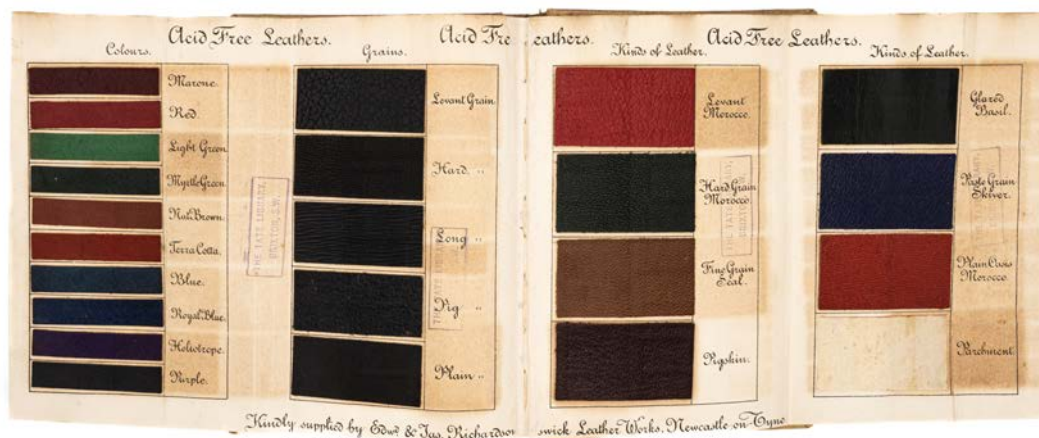 Acid Free Leathers.
Colours.
Marone.
Red.
Light Green.
Myrtle Green.
Nut Brown.
Terra Cotta.
Blue.
Royal Blue.
Heliotrope.
Purple.
Grains.
Levant Grain
Hard. „
Long „
Pig „
Plain „
THE TATE LIBRARY,
BRIXTON, S.W.
Acid Free Leathers.
Kinds of Leather.
Levant
Morocco.
Hard Grain
Morocco.
Fine Grain
Seal.
Pigskin.
Acid Free Leathers.
Kinds of Leather.
Glazed
Basil.
Paste Grain
Skiver.
Plain Oasis
Morocco.
Parchment.
Kindly supplied by Edwd. & Jas. Richardson swick Leather Works, Newcastle-on-Tyne